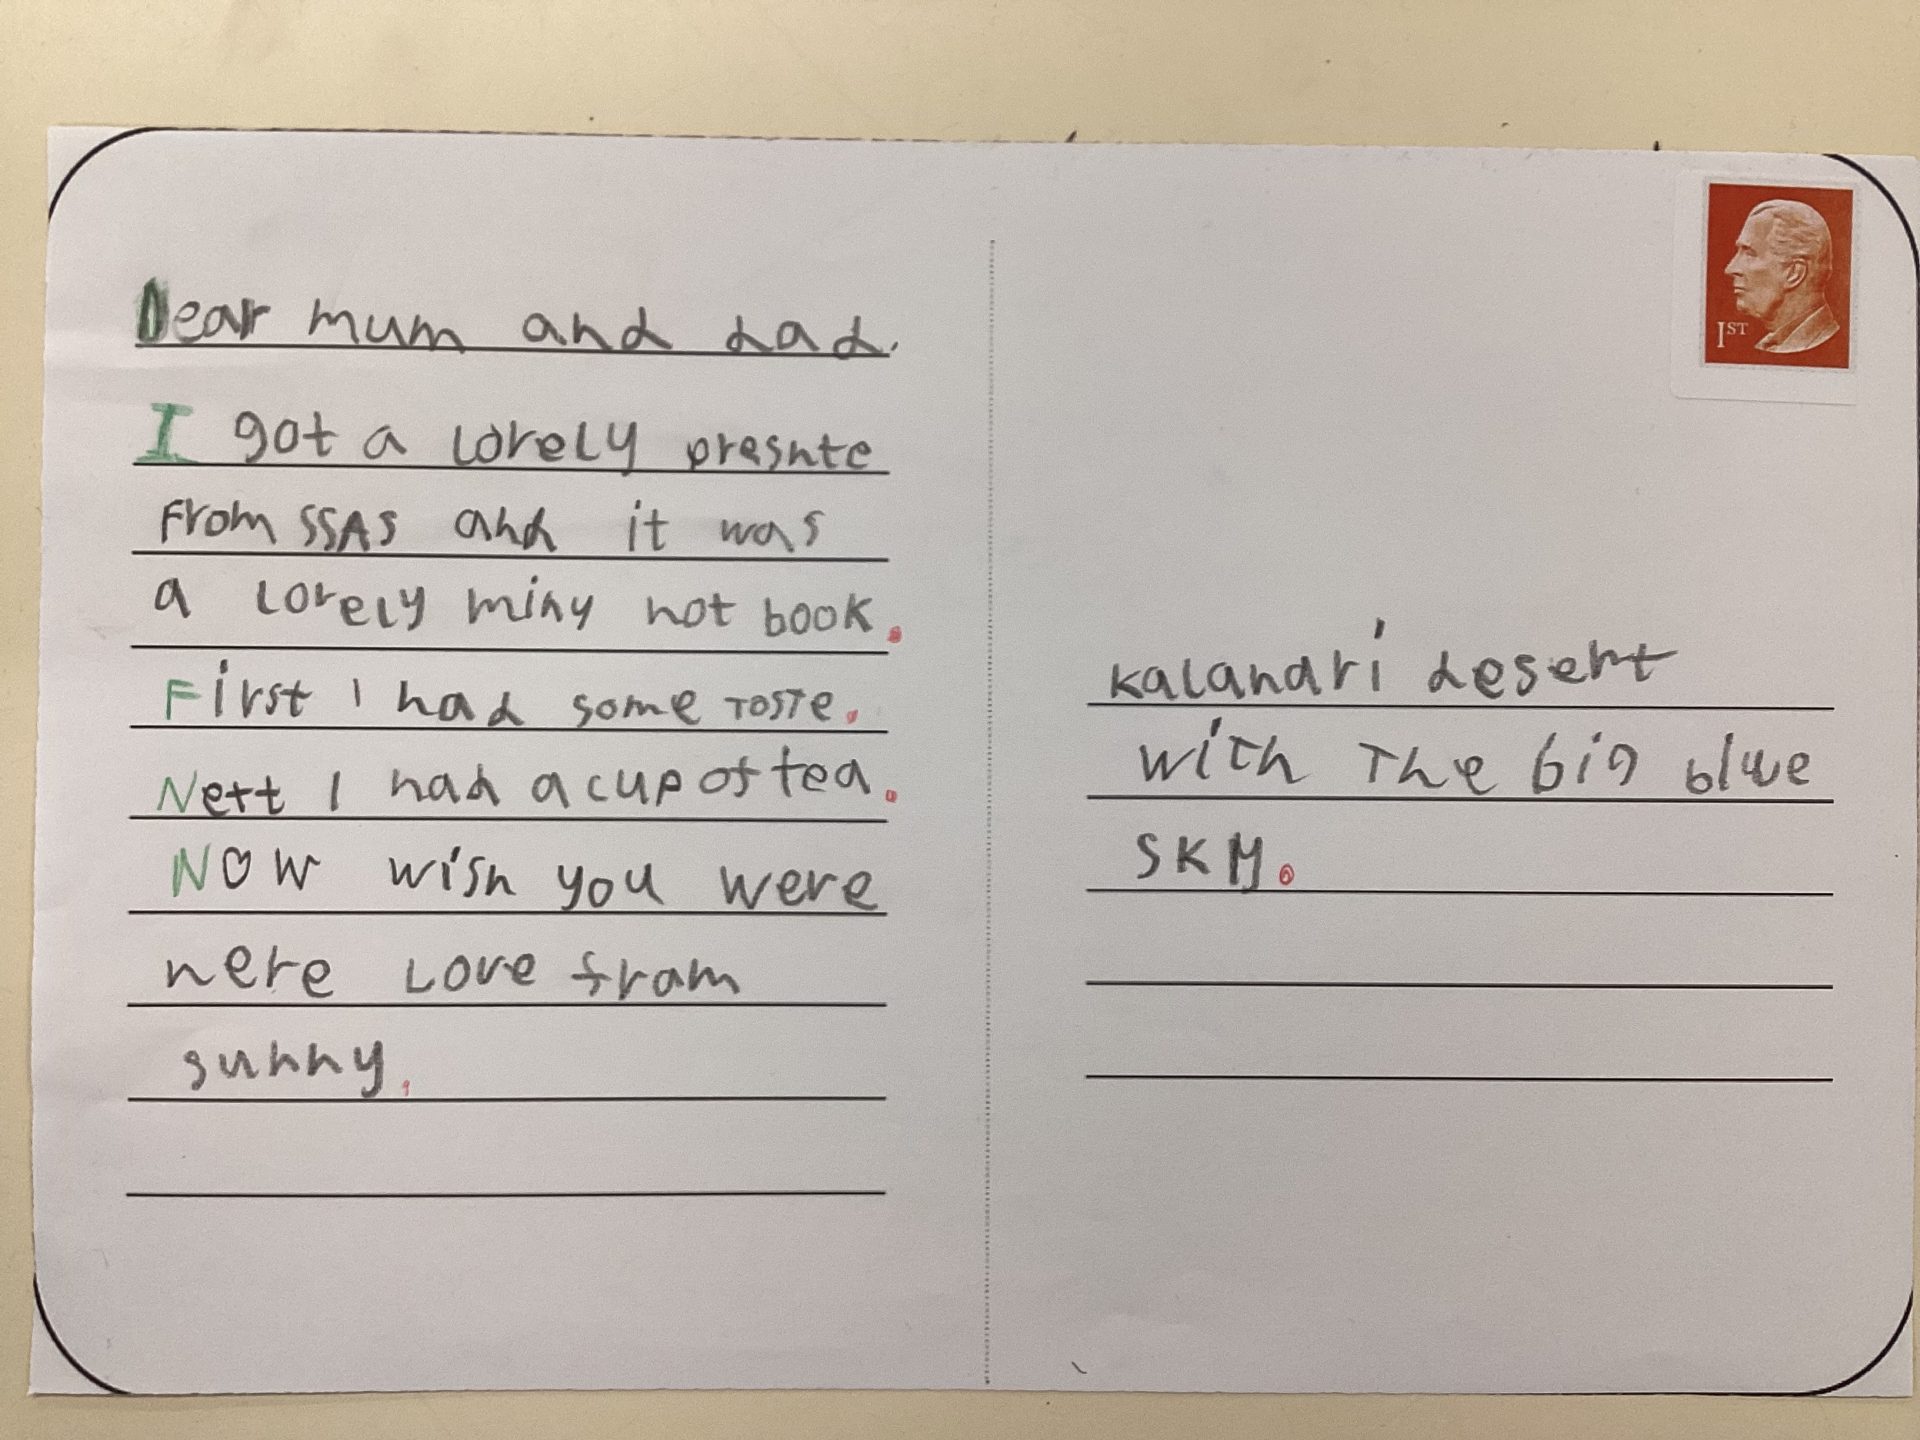 Dear mum and dad.
I got a lovely presnte
From SSAS and it was
a lovely miny not book.
First I had some Toste.
Nett I had a cup of tea.
Now wish you were
here Love fram
sunny.
1ST
Kalahari desert
with The big blue
SKY.